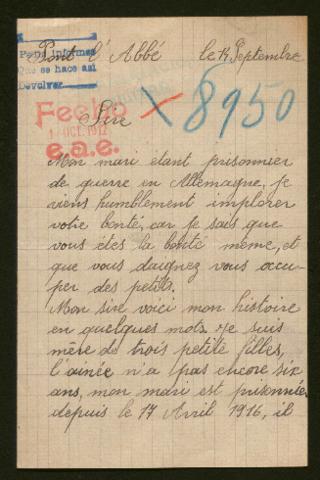 Pont l'Abbé le 14 Septembre
Para informes
Que se hace asi
Devolver
Sire
Fecho
1 OCT. 1917
e.a.e.
X 8950
Mon mari étant prisonnier
de guerre en Allemagne, je
viens humblement implorer
votre bonté, car je sais que
vous êtes la bonté même, et
que vous daignez vous occu-
per des petits.
Mon sire voici mon histoire
en quelques mots. Je suis
mère de trois petite filles,
l'ainée n'a pas encore six
ans, mon mari est prisonnier
depuis le 17 Avril 1916, il